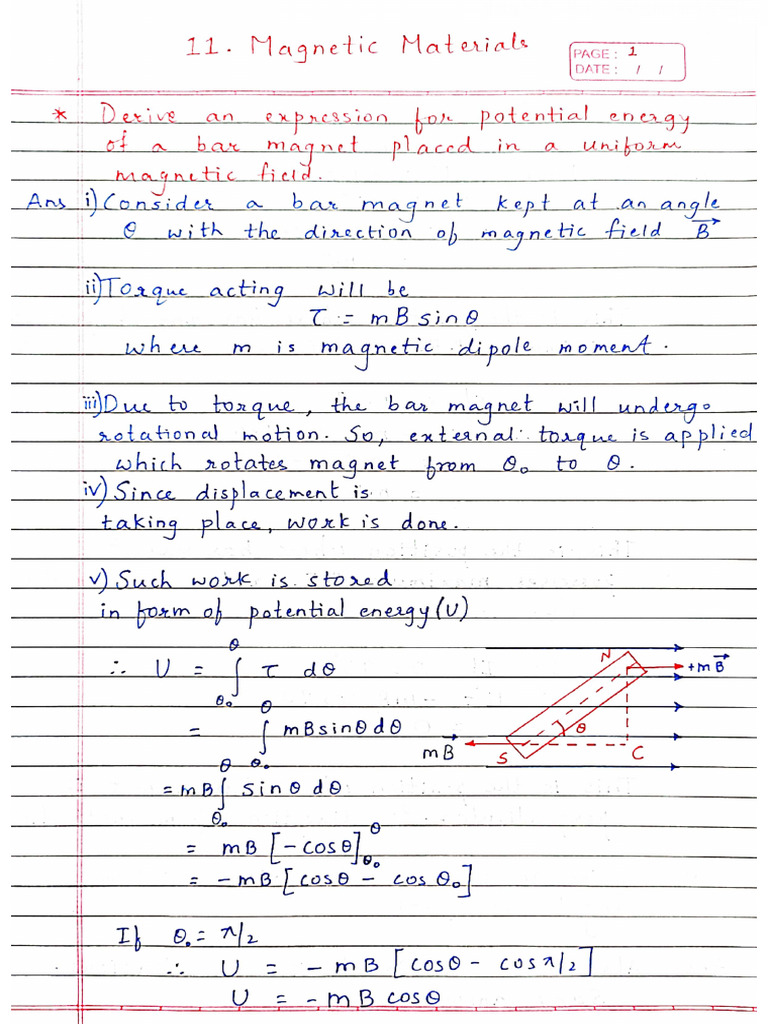 11. Magnetic Materials
PAGE: 1
DATE: / /
* Derive an expression for potential energy
of a bar magnet placed in a uniform
magnetic field.
Ans i) Consider a bar magnet kept at an angle
θ with the direction of magnetic field B⃗
ii) Torque acting will be
τ = mB sinθ
where m is magnetic dipole moment.
iii) Due to torque, the bar magnet will undergo
rotational motion. So, external torque is applied
which rotates magnet from θ₀ to θ.
iv) Since displacement is
taking place, work is done.
v) Such work is stored
in form of potential energy (U)
∴ U = ∫θ₀^θ τ dθ
= ∫θ₀^θ mB sinθ dθ
= mB ∫θ₀^θ sinθ dθ
= mB [-cosθ]θ₀^θ
= -mB [cosθ - cos θ₀]
N
+mB⃗
θ
mB⃗
S
C
If θ₀ = π/2
∴ U = -mB [cosθ - cosπ/2]
U = -mB cosθ